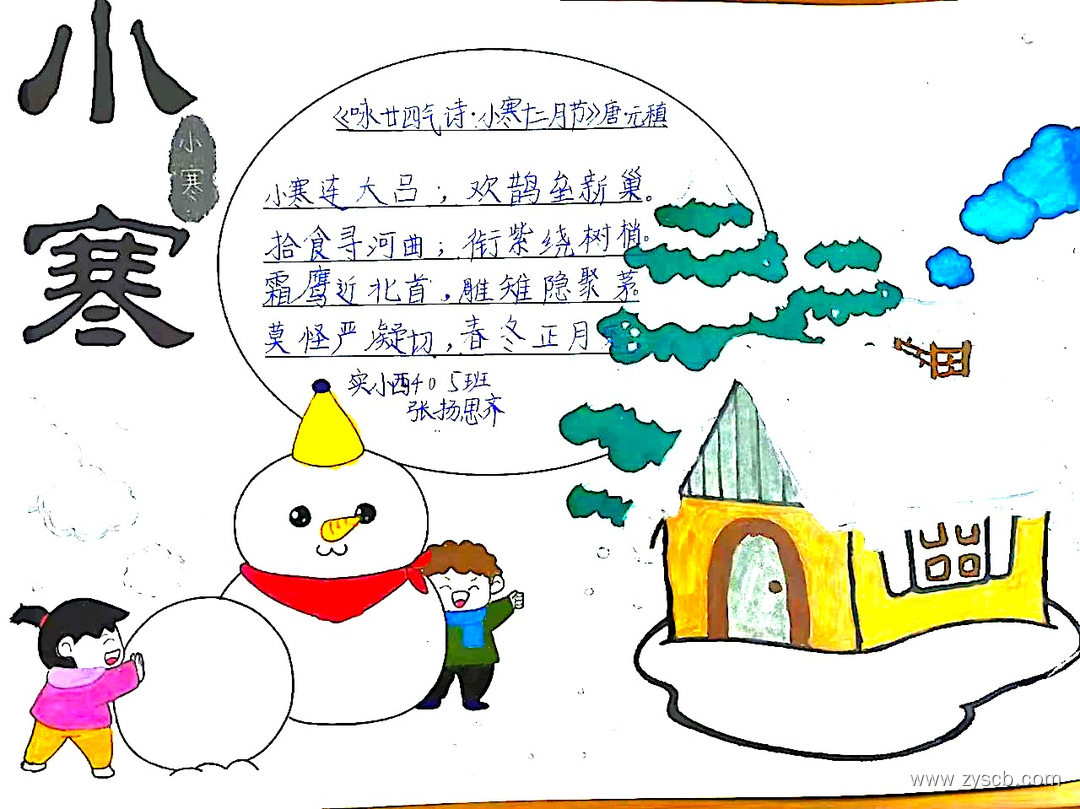 小寒
小寒
《咏廿四气诗·小寒十二月节》唐·元稹
小寒连大吕；欢鹊垒新巢。
拾食寻河曲；衔紫绕树梢。
霜鹰近北首，雊雉隐聚茅。
莫怪严凝切，春冬正月
实小西405班
张扬思齐
www.zyscb.com